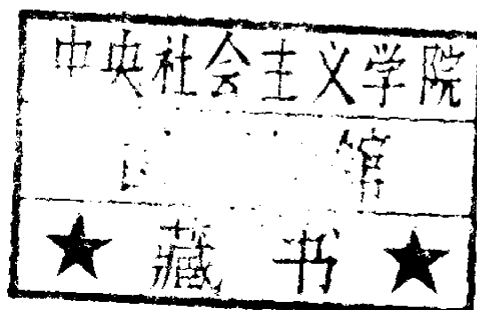 中央社会主义学院
馆
★ 藏书 ★